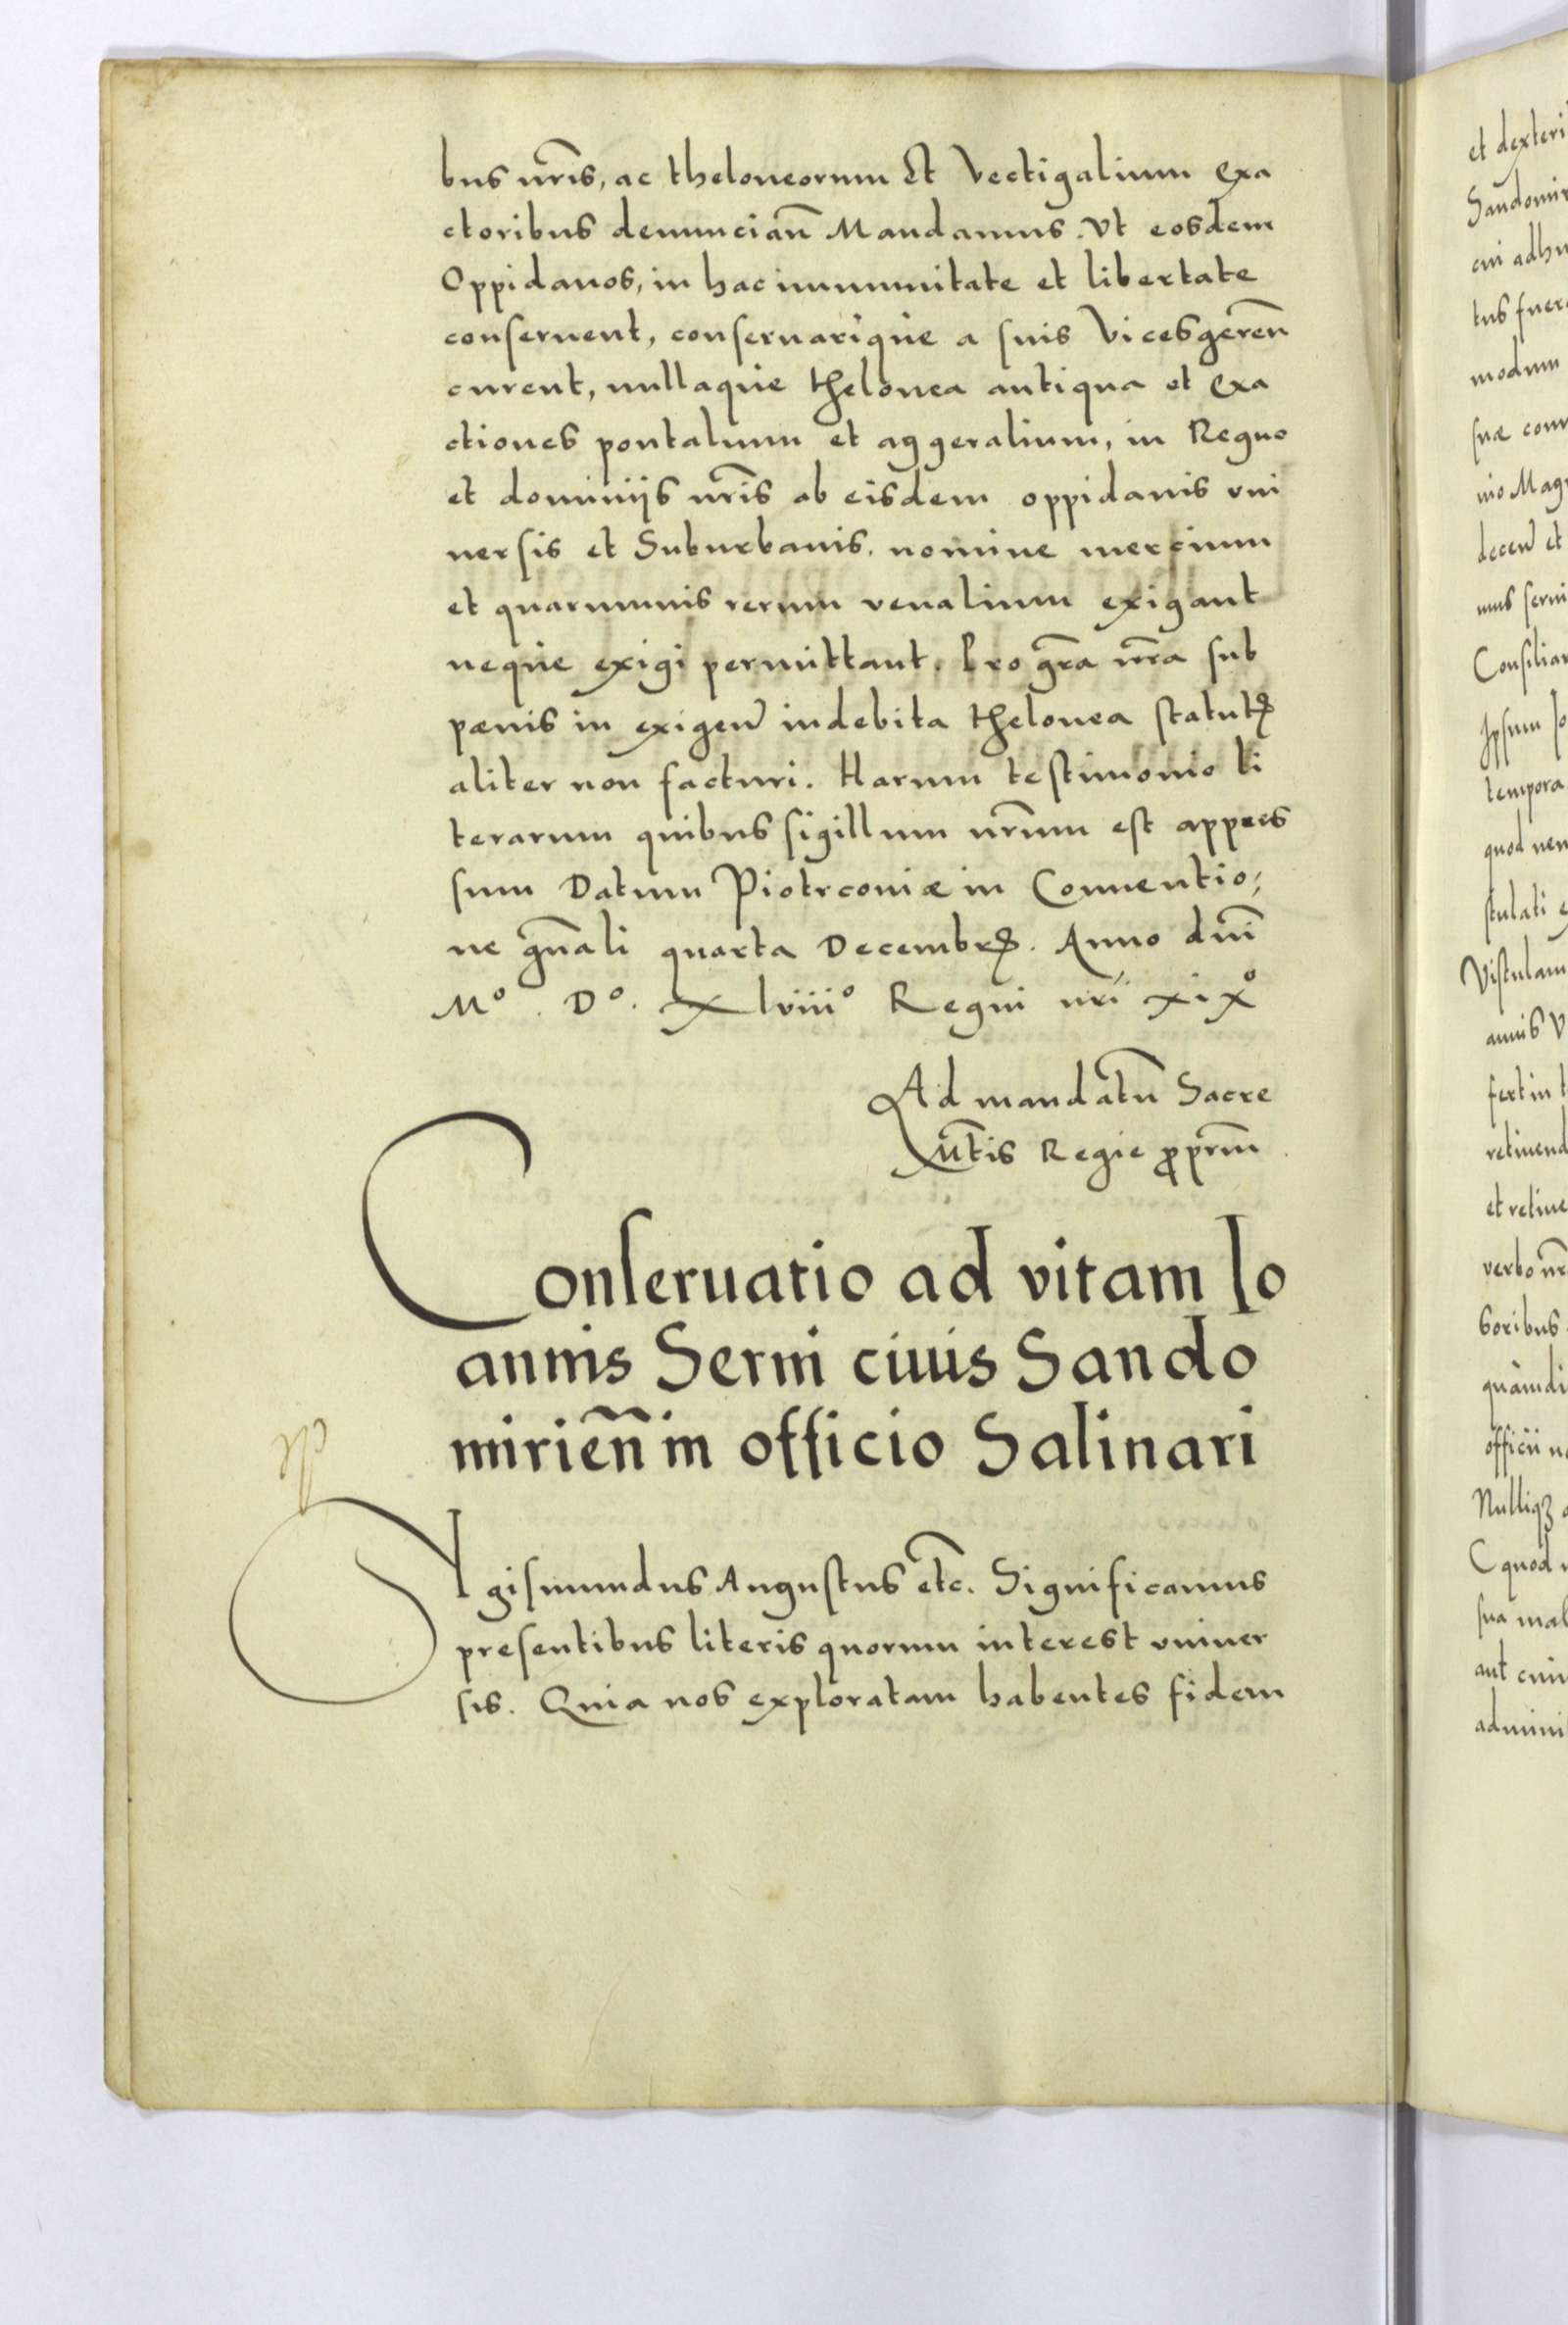 bus nr̃is, ac theloneorum Et Vectigalium exa
ctoribus denuncian̄ Mandamus. Vt eosdem
Oppidanos, in hac immunitate et libertate
conseruent, conseruarique a suis Vicesgeren̄
curent, nullaque thelonea antiqua et exa
ctiones pontalium et aggeralium, in Regno
et dominijs nr̃is ab eisdem oppidanis vni
uersis et Suburbanis. nomine mercium
et quarumuis rerum venalium exigant
neque exigi permittant. Pro gr̃a nr̃a sub
pænis in exigen̄ indebita thelonea statutꝭ
aliter non facturi. Harum testimonio li
terarum quibus sigillum nr̃um est appres
sum Datum Piotrconiæ in Conuentio;
ne gn̄ali quarta Decembrꝭ. Anno dn̄i
Mº. Dº. Xlviiiº Regni nr̃i xixº
Ad mandatū Sacre
Mt̃is Regie ꝓpriū
Conseruatio ad vitam Io
annis Serni ciuis Sando
mirien̄ in officio Salinari
SYgismundus Augustus etc̃. Significamus
presentibus literis quorum interest vniuer
sis. Quia nos exploratam habentes fidem
et dexteri
Sandomir
cui adhu
tus fuer
modum
suæ com
nio Mag
decen̄ et
mus serui
Consiliar
Ipsum Jo
tempora
quod nem
stulati e
Vistulam
annis V
fert in t
retinend
et retine
verbo nr̃
soribus
quàmdi
officii n
Nulliqꝫ a
C quod n
sua mal
aut cuiu
admini